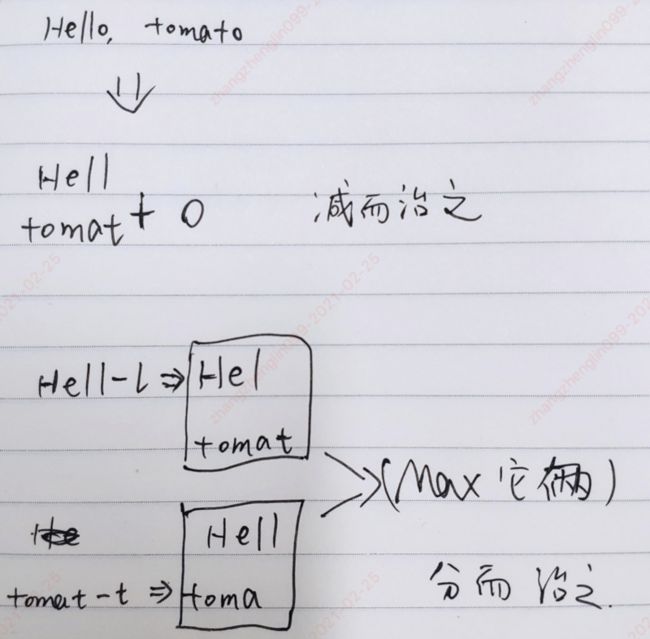 Hello, tomato
Hell
tomat + o 减而治之
Hell-l ⇒ Hel
tomat
(Max 它俩)
Hell
tomat-t ⇒ toma
分而治之.
zhangzhenglin099-2021-02-25